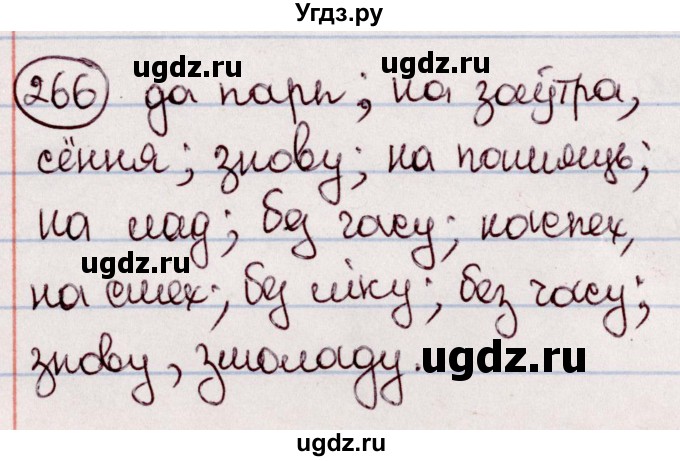 Угдз.ру
ugdz.ru ugdz.ru
266 да пары; на заўтра,
сёння; знову; на памяць;
на лад; без часу; наспех,
ugdz.ru
на смех; без ліку; без часу;
знову, змоладу.
ugdz.ru
ugdz.ru